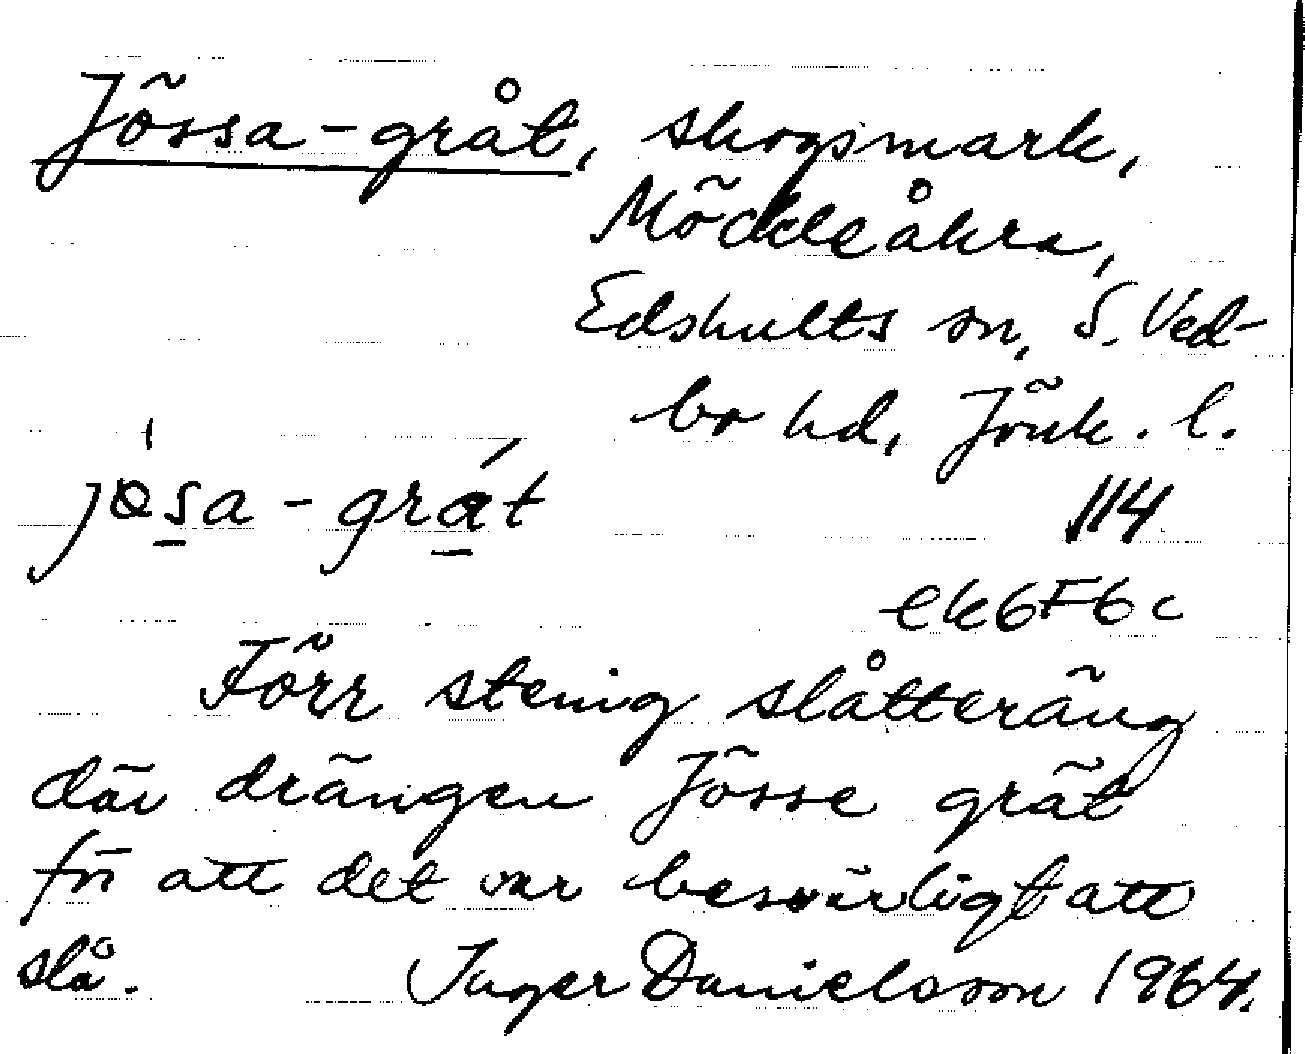 Jössa-gråt, skogsmark,
Möckleåkra,
Edshults sn, S. Ved-
bo hd, Jönk. l.
jøsa-grat
114
ek6F6c
Förr stenig slåtteräng
där drängen Jösse grät
för att det var besvärligt att
slå. Inger Danielsson 1964.